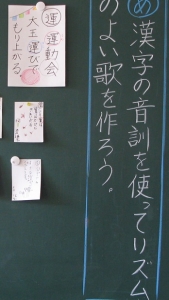 め 漢字の音訓を使ってリズム
のよい歌を作ろう。
運 運動会
大玉運びで
もり上がる